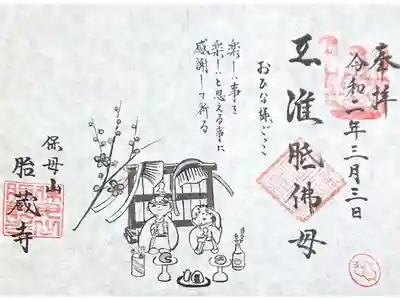 奉拝
令和二年三月三日
准胝佛母
おひな様ごっこ
楽しい事を
楽しいと思える事に
感謝して祈る
保母山
胎蔵寺